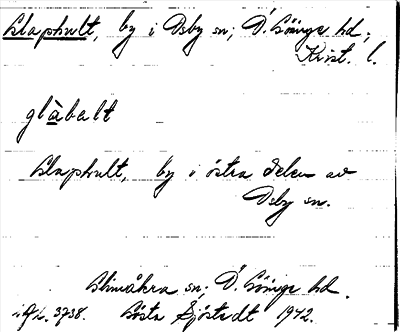 Glaphult, by i Osby sn; Ö. Göinge hd;
Krist. l.
glàbalt
Glaphult, by i östra delen av
Osby sn.
Glimåkra sn; Ö. Göinge hd.
3738. Gösta Sjöstedt 1942.